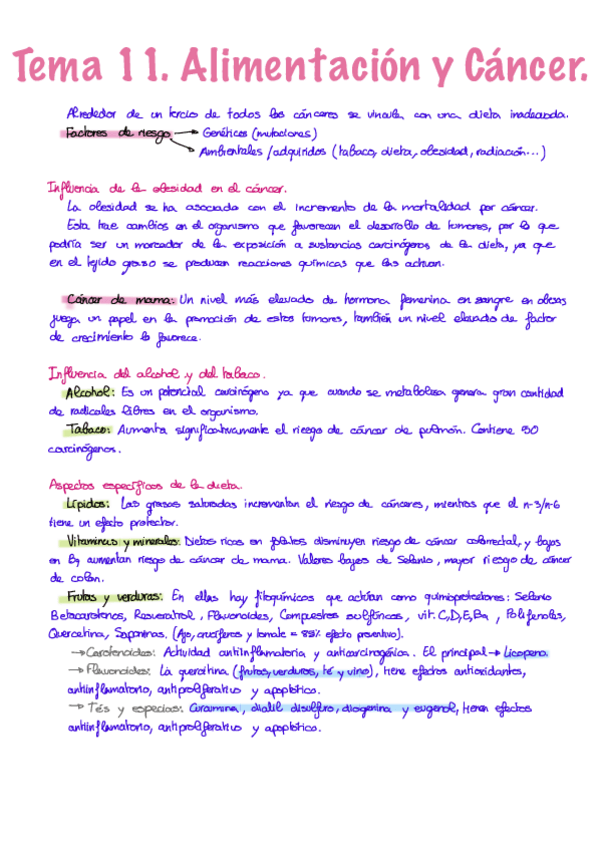 Tema 11. Alimentación y Cáncer.
Alrededor de un tercio de todos los cánceres se vincula con una dieta inadecuada.
Factores de riesgo → Genéticos (mutaciones)
→ Ambientales/adquiridos (tabaco, dieta, obesidad, radiación...)
Influencia de la obesidad en el cáncer.
La obesidad se ha asociado con el incremento de la mortalidad por cáncer.
Esta trae cambios en el organismo que favorecen el desarrollo de tumores, por lo que
podría ser un marcador de la exposición a sustancias carcinógenas de la dieta, ya que
en el tejido graso se producen reacciones químicas que las activan.
Cáncer de mama: Un nivel más elevado de hormona femenina en sangre en obesas
juega un papel en la promoción de estos tumores, también un nivel elevado de factor
de crecimiento lo favorece.
Influencia del alcohol y del tabaco.
Alcohol: Es un potencial carcinógeno ya que cuando se metaboliza genera gran cantidad
de radicales libres en el organismo.
Tabaco: Aumenta significativamente el riesgo de cáncer de pulmón. Contiene 50
carcinógenos.
Aspectos específicos de la dieta.
Lípidos: Las grasas saturadas incrementan el riesgo de cánceres, mientras que el n-3/n-6
tiene un efecto protector.
Vitaminas y minerales: Dietas ricas en folatos disminuyen riesgo de cáncer colorrectal, y bajas
en B9 aumentan riesgo de cáncer de mama. Valores bajos de Selenio, mayor riesgo de cáncer
de colon.
Frutas y verduras: En ellas hay fitoquímicos que actúan como quimioprotectores: Selenio
Betacarotenos, Resveratrol, Flavonoides, Compuestos sulfúricos, vit. C,D,E,B9, Polifenoles,
Quercetina, Saponinas. (Ajo, crucíferas y tomate = 89% efecto preventivo).
→ Carotenoides: Actividad antiinflamatoria y anticarcinogénica. El principal → Licopeno.
→ Flavonoides: La quercitina (frutas, verduras, té y vino), tiene efectos antioxidantes,
antiinflamatorio, antiproliferativo y apoptótico.
→ Tés y especias: Curcumina, dialil disulfuro, diogenina y eugenol, tienen efectos
antiinflamatorio, antiproliferativo y apoptótico.